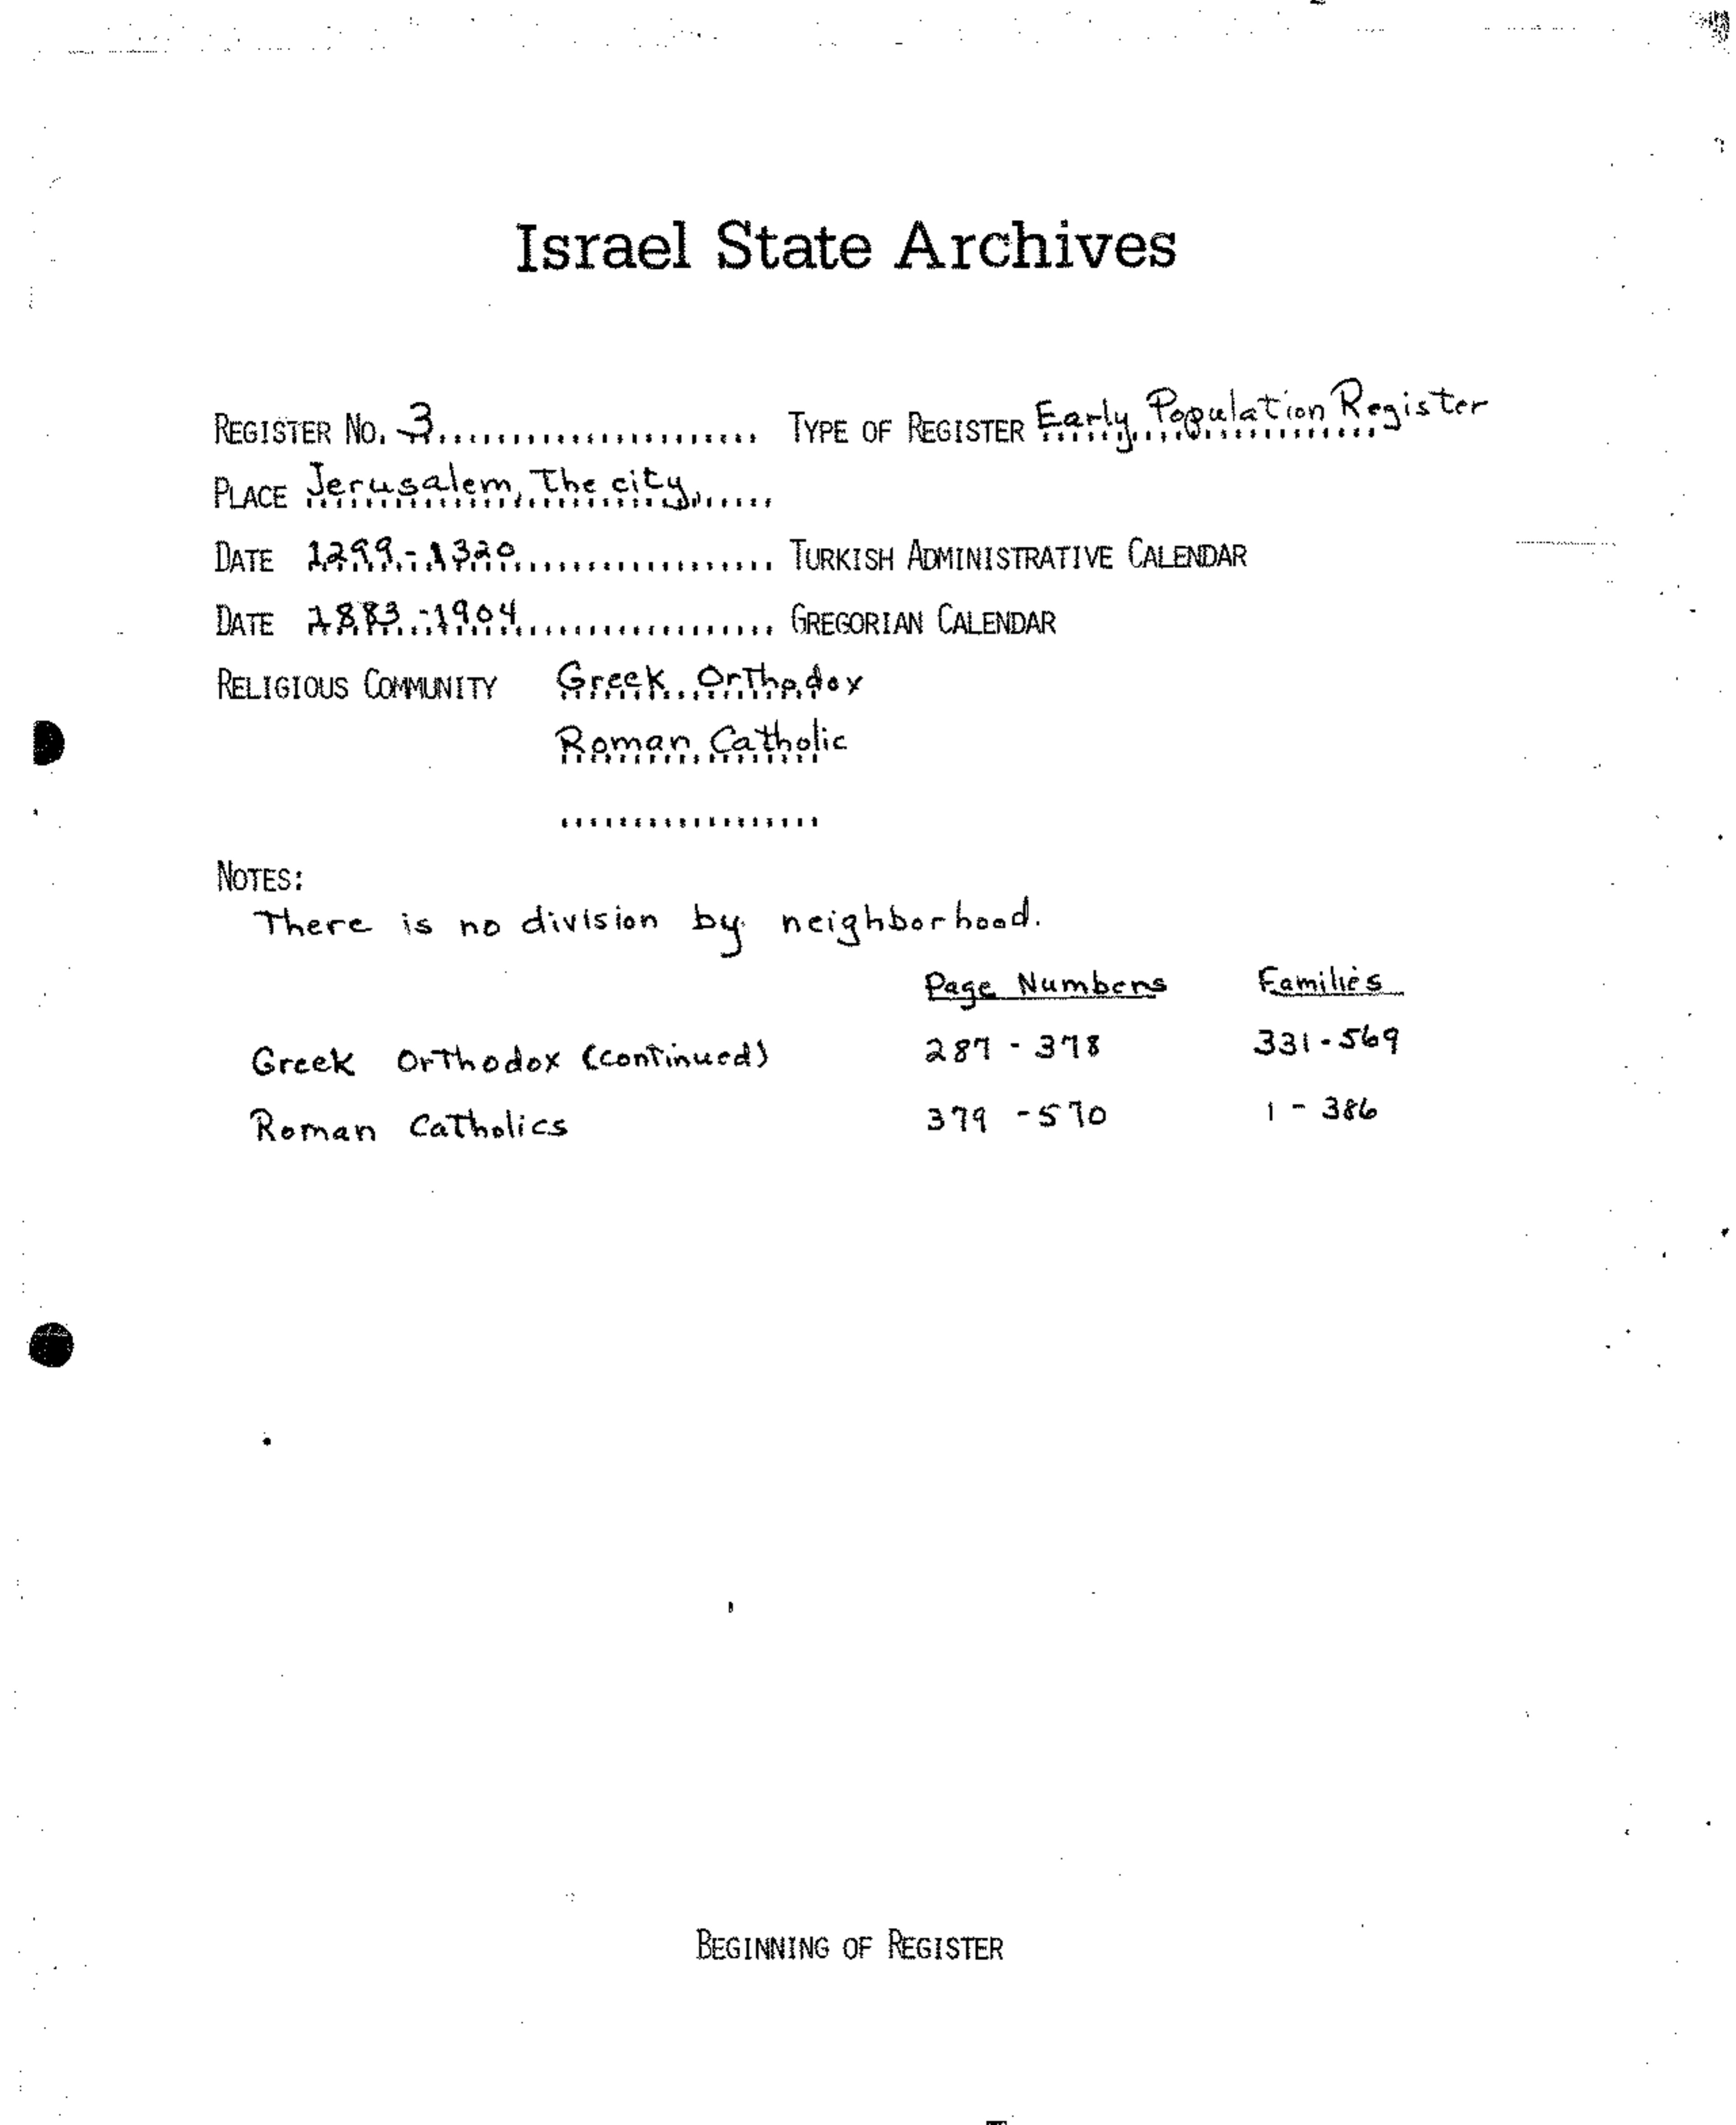 Israel State Archives
REGISTER NO. 3 TYPE OF REGISTER Early Population Register
PLACE Jerusalem, The city
DATE 1299-1320 TURKISH ADMINISTRATIVE CALENDAR
DATE 1883-1904 GREGORIAN CALENDAR
RELIGIOUS COMMUNITY Greek Orthodox
Roman Catholic
NOTES:
There is no division by neighborhood.
Page Numbers Families
Greek Orthodox (continued) 287 - 378 331-569
Roman Catholics 379 - 570 1 - 386
BEGINNING OF REGISTER